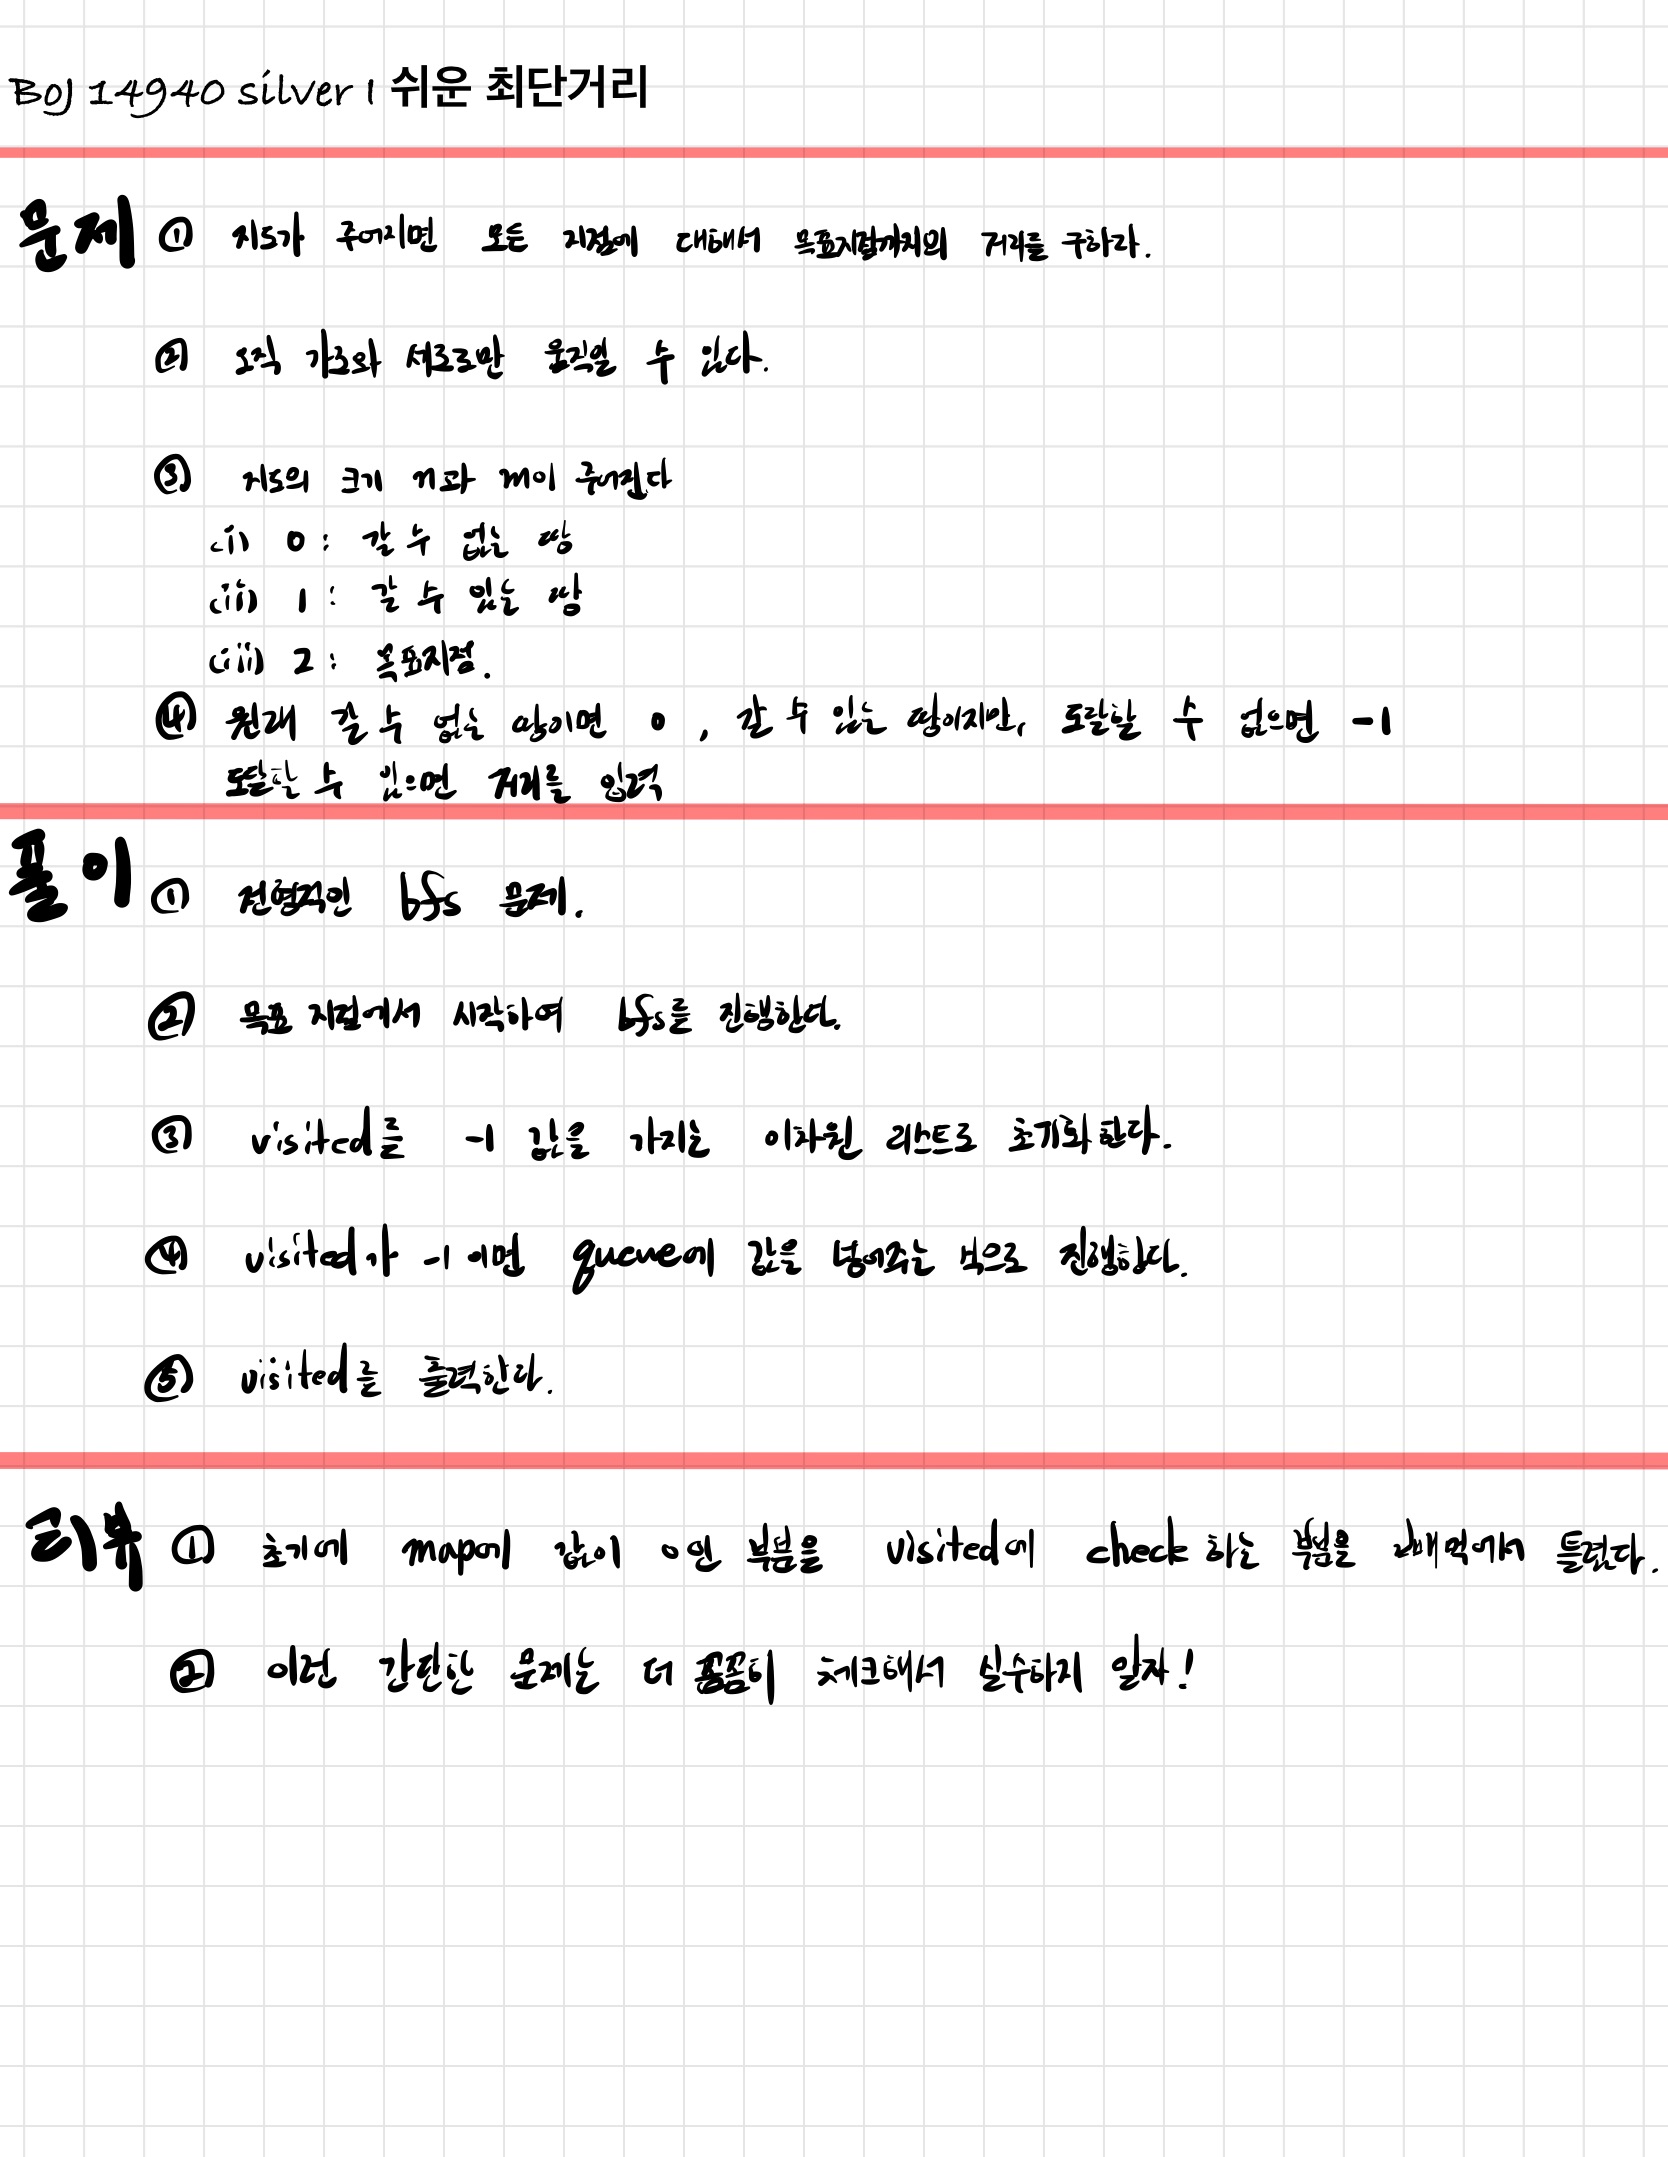 BOJ 14940 silver 1 쉬운 최단거리
문제 ① 지도가 주어지면 모든 지점에 대해서 목표지점까지의 거리를 구하라.
② 오직 가로와 세로로만 움직일 수 있다.
③ 지도의 크기 n과 m이 주어진다
(i) 0 : 갈 수 없는 땅
(ii) 1 : 갈 수 있는 땅
(iii) 2 : 목표지점.
④ 원래 갈 수 없는 땅이면 0 , 갈 수 있는 땅이지만, 도달할 수 없으면 -1
도달할 수 있으면 거리를 입력
풀이 ① 전형적인 bfs 문제.
② 목표 지점에서 시작하여 bfs를 진행한다.
③ visited를 -1 값을 가지는 이차원 리스트로 초기화 한다.
④ visited가 -1 이면 queue에 값을 넣어주는 식으로 진행한다.
⑤ visited를 출력한다.
리뷰 ① 초기에 map에 값이 0인 부분을 visited에 check 하는 부분을 까먹어서 틀렸다.
② 이런 간단한 문제는 더 꼼꼼히 체크해서 실수하지 말자!